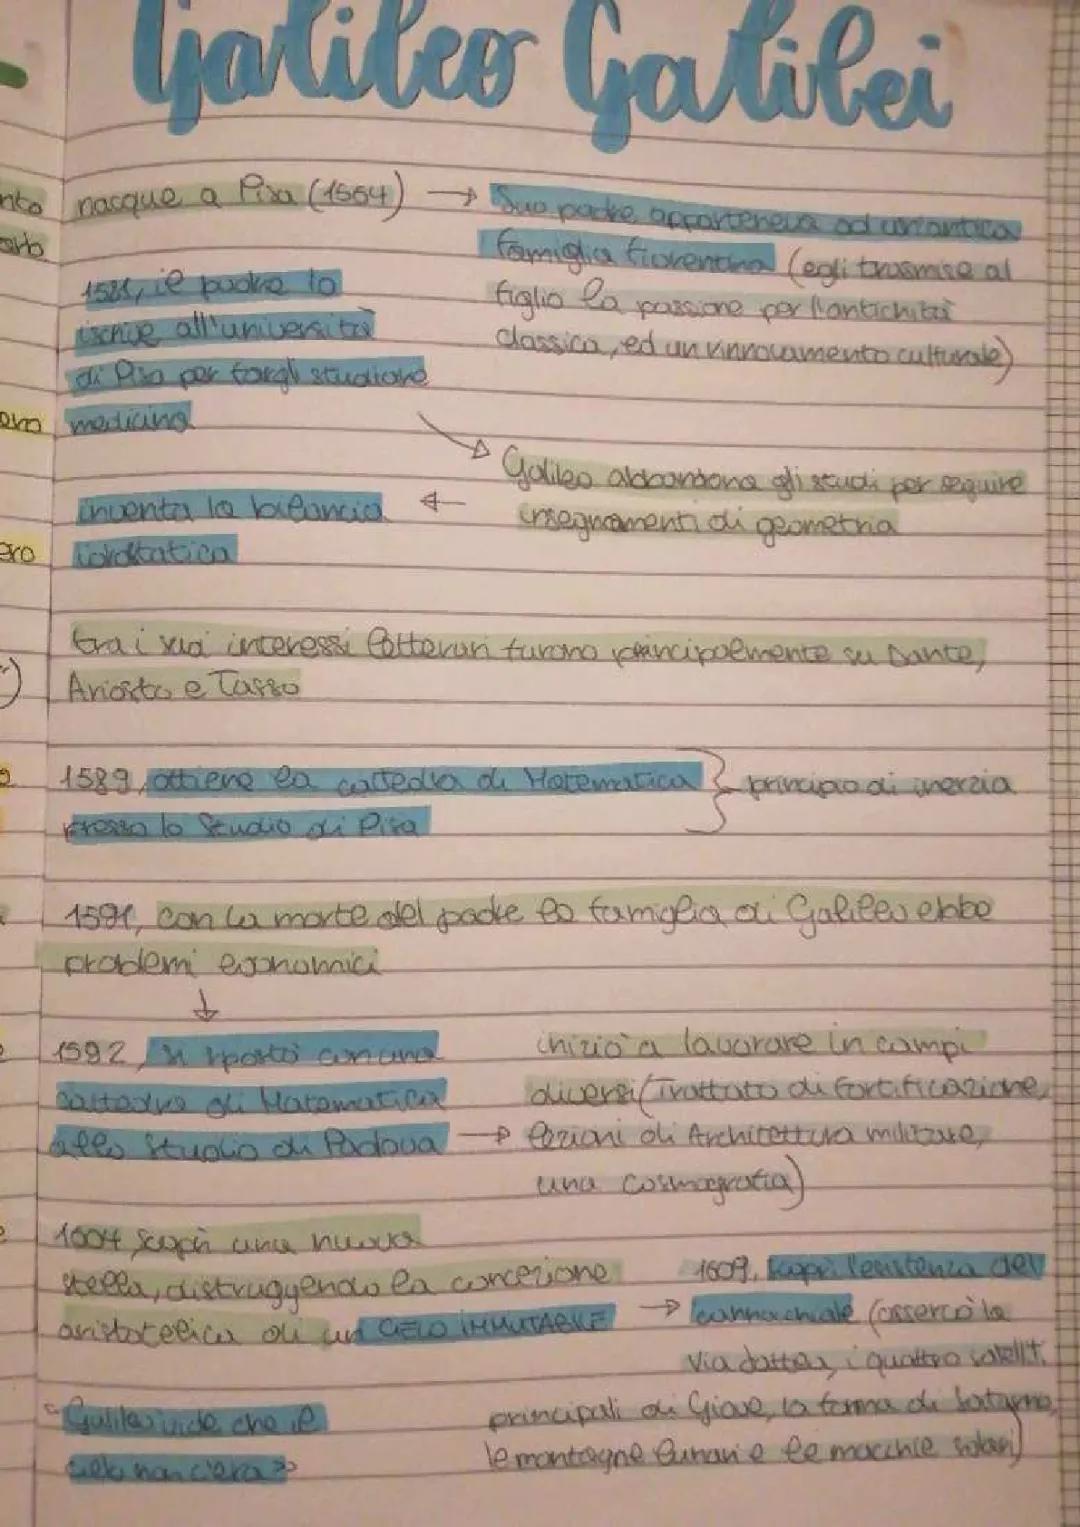 Galileo Galilei
nto
nacque a Pisa (1564) → Suo padre apparteneva ad un'antica
famiglia fiorentina (egli trasmise al
figlio la passione per l'antichità
classica, ed un rinnovamento culturale)
1581, il padre lo
iscrive all'università
di Pisa per fargli studiare
medicina
Galileo abbandona gli studi per seguire
insegnamenti di geometria
inventa la bilancia ←
idrostatica
tra i suoi interessi letterari furono principalmente su Dante,
Ariosto e Tasso
1589, ottiene la cattedra di Matematica } principio di inerzia
presso lo Studio di Pisa
1591, con la morte del padre la famiglia di Galileo ebbe
problemi economici
↓
1592, si spostò con una
cattedra di Matematica
allo Studio di Padova →
iniziò a lavorare in campi
diversi (Trattato di fortificazione,
lezioni di Architettura militare,
una cosmografia)
1604 scoprì una nuova
stella, distruggendo la concezione
aristotelica di un CIELO IMMUTABILE →
1609, scoprì l'esistenza del
cannochiale (osservò la
via lattea, i quattro satelliti
principali di Giove, la forma di Saturno,
le montagne lunari e le macchie solari)
"Galileo vide che il
cielo non c'era"